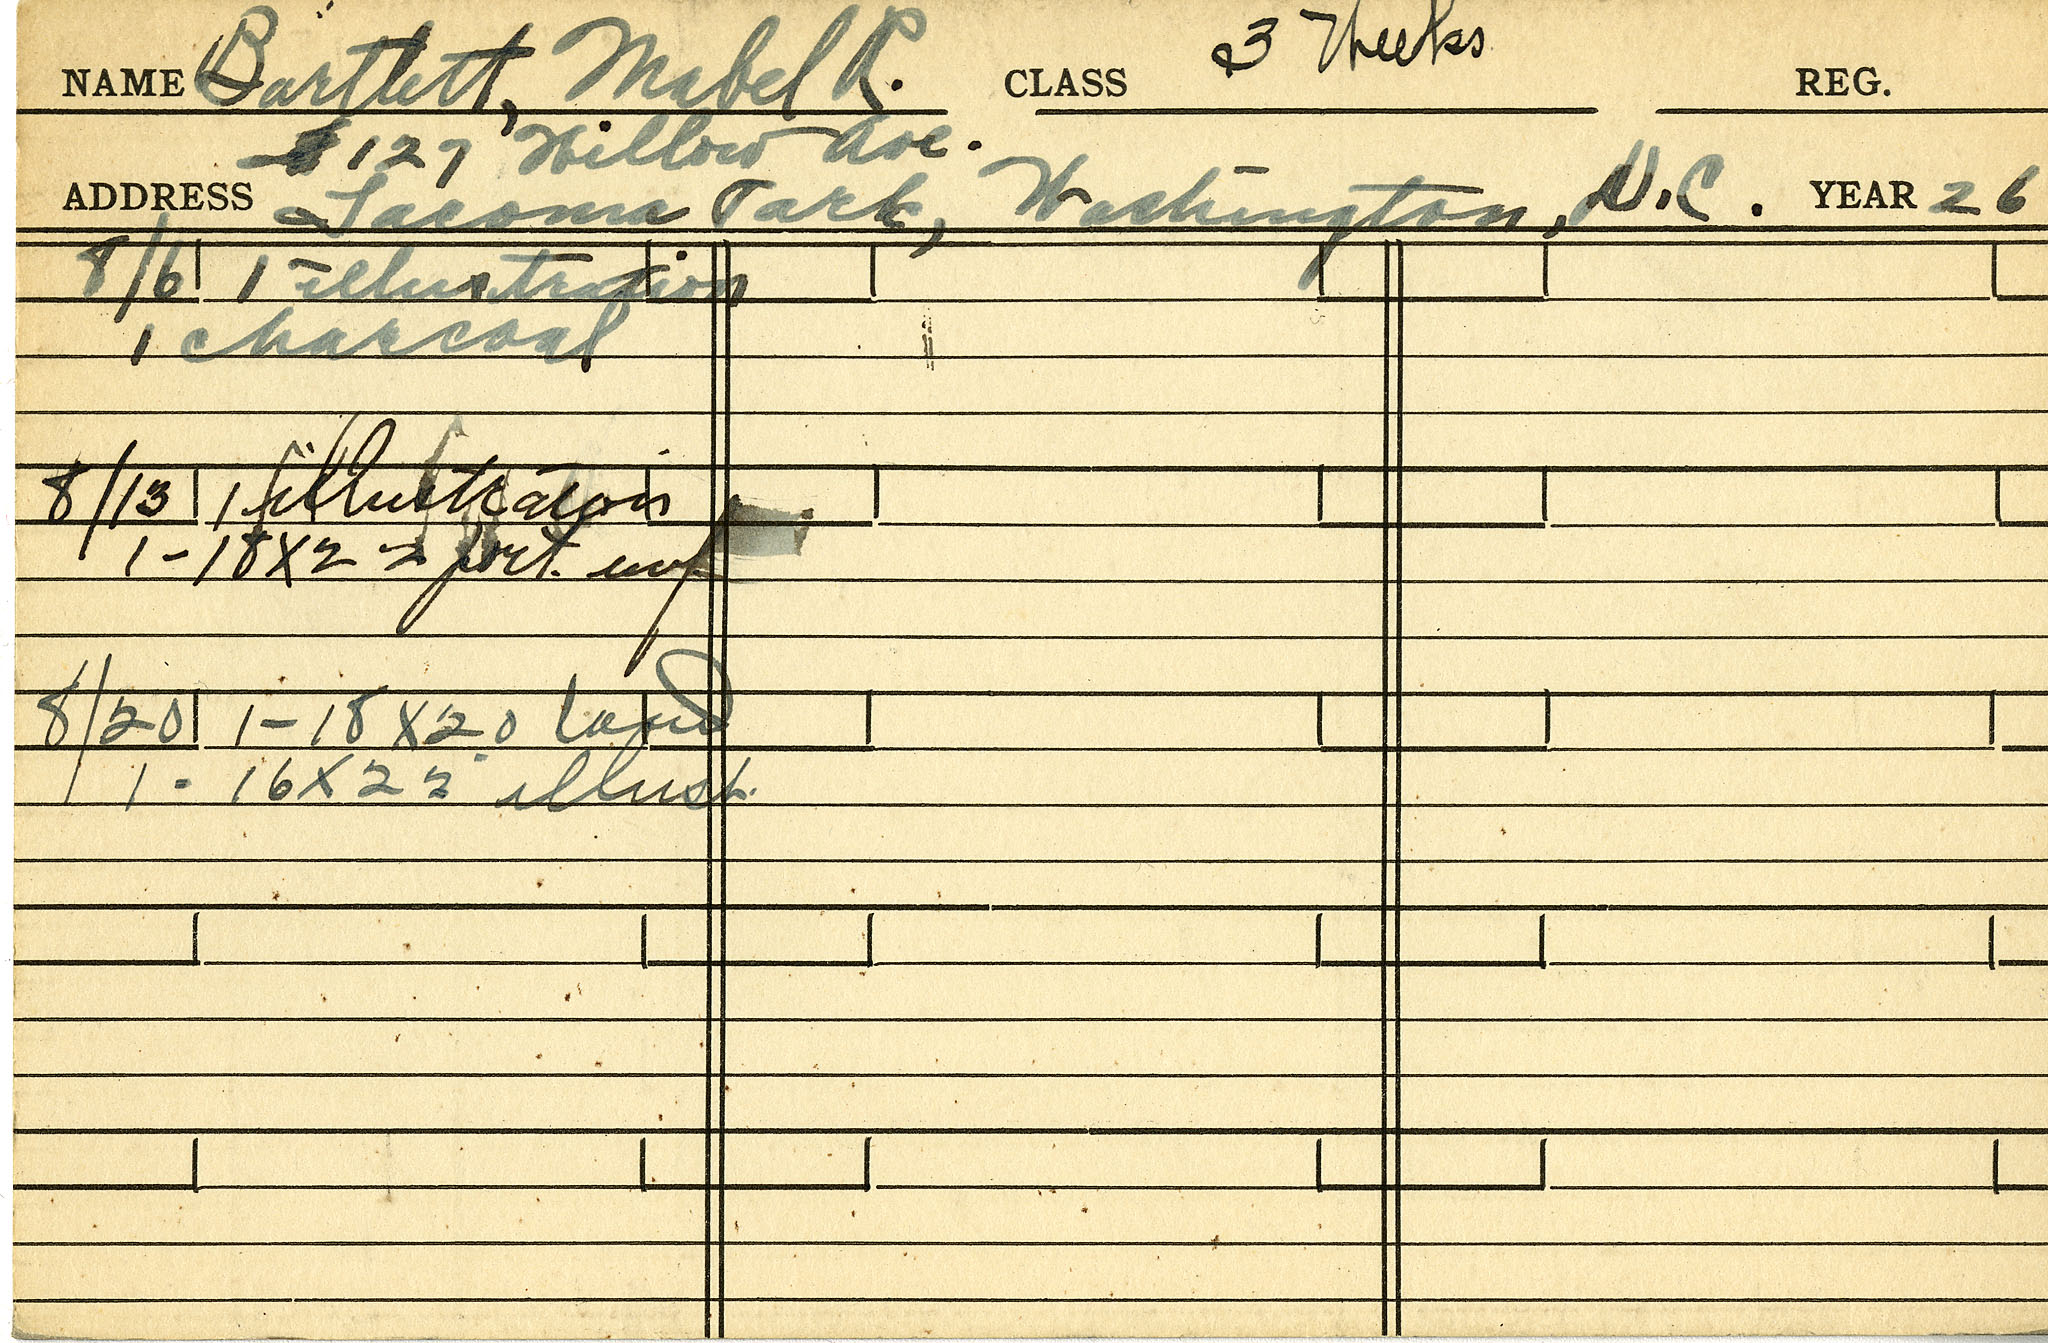 NAME Bartlett, Mabel R. CLASS 3 Weeks REG.
127 Willow Ave.
ADDRESS Tacoma Park, Washington, D.C. YEAR 26
8/6 1 illustration
1 charcoal
8/13 1 illustration
1-18X22 port. unf
8/20 1-18X20 land
1-16X22 illust.